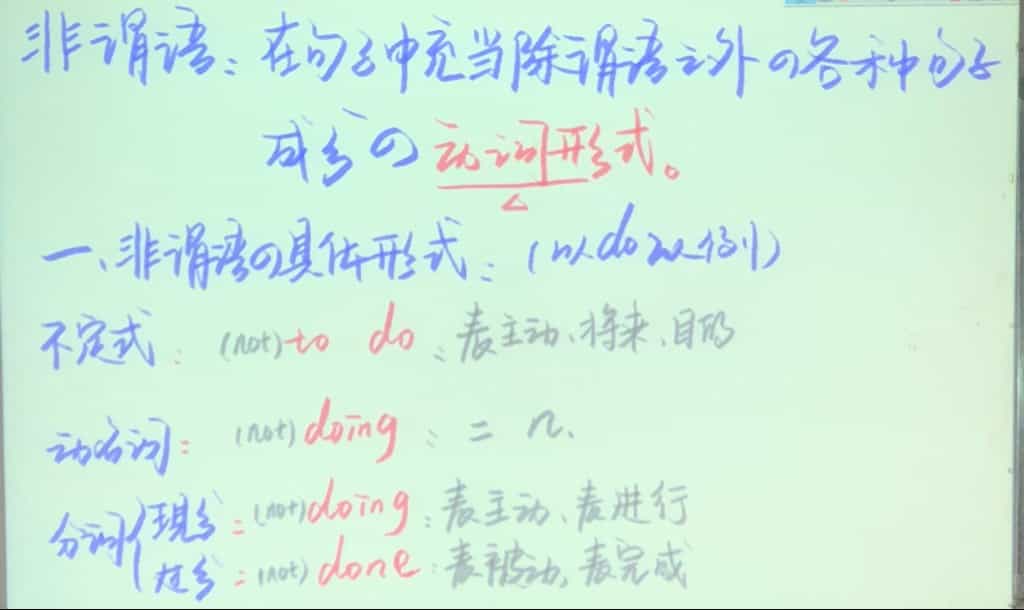 非谓语：在句子中充当除谓语之外の各种句子
成分の动词形式。
一、非谓语の具体形式：（以do为例）
不定式：(not) to do：表主动、将来、目的
动名词：(not) doing：= n.
分词{现分：(not) doing：表主动、表进行
过分：(not) done：表被动，表完成